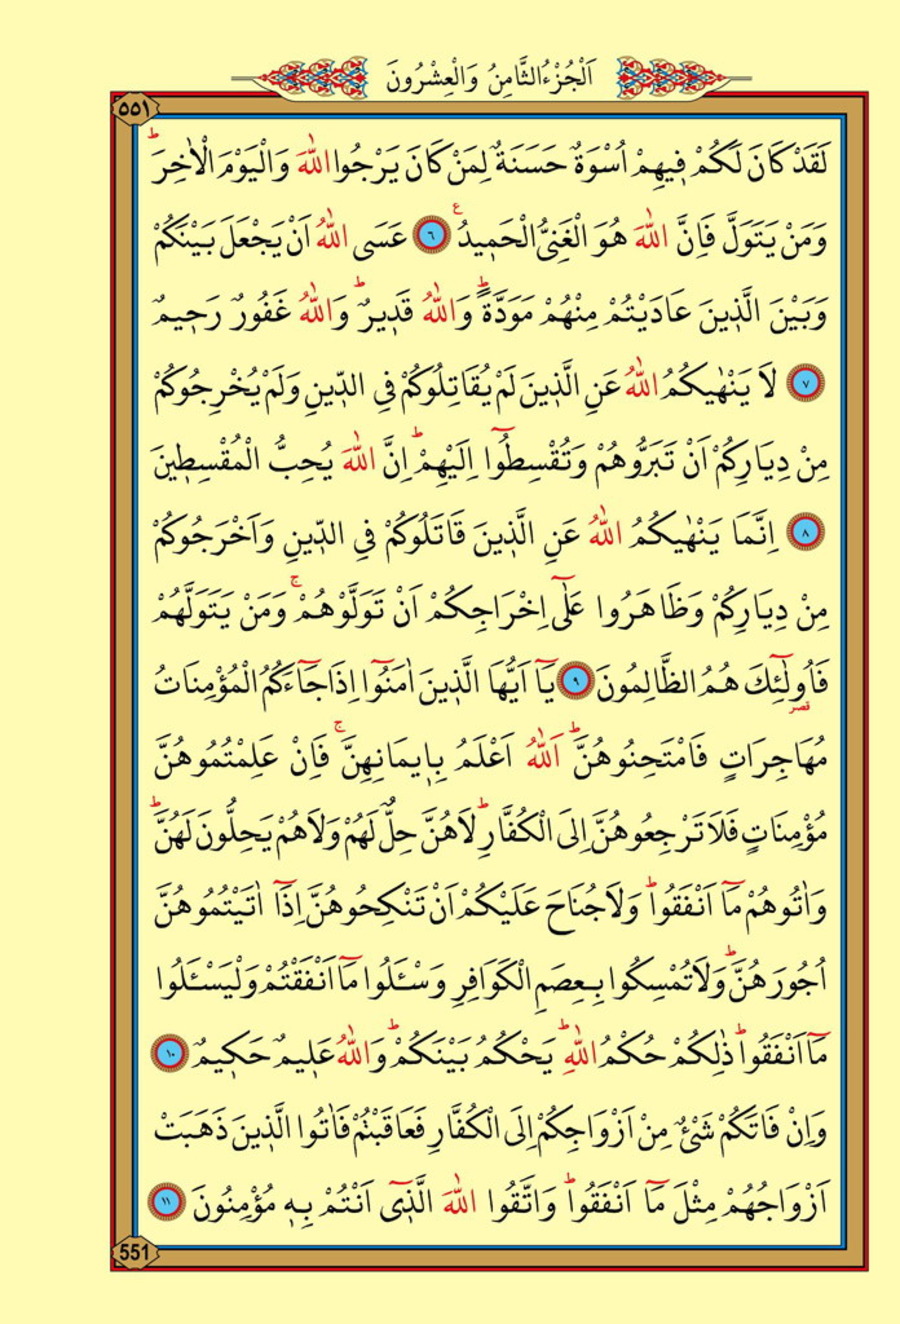 اَلْجُزْءُ الثَّامِنُ وَالْعِشْرُونَ
٥٥١
لَقَدْ كَانَ لَكُمْ ف۪يهِمْ اُسْوَةٌ حَسَنَةٌ لِمَنْ كَانَ يَرْجُوا اللّٰهَ وَالْيَوْمَ الْاٰخِرَۜ
وَمَنْ يَتَوَلَّ فَاِنَّ اللّٰهَ هُوَ الْغَنِيُّ الْحَم۪يدُ ﴿٦﴾ ع عَسَى اللّٰهُ اَنْ يَجْعَلَ بَيْنَكُمْ
وَبَيْنَ الَّذ۪ينَ عَادَيْتُمْ مِنْهُمْ مَوَدَّةًۜ وَاللّٰهُ قَد۪يرٌۜ وَاللّٰهُ غَفُورٌ رَح۪يمٌ
﴿٧﴾ لَا يَنْهٰيكُمُ اللّٰهُ عَنِ الَّذ۪ينَ لَمْ يُقَاتِلُوكُمْ فِي الدّ۪ينِ وَلَمْ يُخْرِجُوكُمْ
مِنْ دِيَارِكُمْ اَنْ تَبَرُّوهُمْ وَتُقْسِطُٓوا اِلَيْهِمْۜ اِنَّ اللّٰهَ يُحِبُّ الْمُقْسِط۪ينَ
﴿٨﴾ اِنَّمَا يَنْهٰيكُمُ اللّٰهُ عَنِ الَّذ۪ينَ قَاتَلُوكُمْ فِي الدّ۪ينِ وَاَخْرَجُوكُمْ
مِنْ دِيَارِكُمْ وَظَاهَرُوا عَلٰٓى اِخْرَاجِكُمْ اَنْ تَوَلَّوْهُمْۚ وَمَنْ يَتَوَلَّهُمْ
فَاُو۬لٰٓئِكَ هُمُ الظَّالِمُونَ ﴿٩﴾ يَٓا اَيُّهَا الَّذ۪ينَ اٰمَنُٓوا اِذَا جَٓاءَكُمُ الْمُؤْمِنَاتُ
مُهَاجِرَاتٍ فَامْتَحِنُوهُنَّۜ اَللّٰهُ اَعْلَمُ بِا۪يمَانِهِنَّۚ فَاِنْ عَلِمْتُمُوهُنَّ
مُؤْمِنَاتٍ فَلَا تَرْجِعُوهُنَّ اِلَى الْكُفَّارِۜ لَا هُنَّ حِلٌّ لَهُمْ وَلَا هُمْ يَحِلُّونَ لَهُنَّۜ
وَاٰتُوهُمْ مَٓا اَنْفَقُواۜ وَلَا جُنَاحَ عَلَيْكُمْ اَنْ تَنْكِحُوهُنَّ اِذَٓا اٰتَيْتُمُوهُنَّ
اُجُورَهُنَّۜ وَلَا تُمْسِكُوا بِعِصَمِ الْكَوَافِرِ وَسْـَٔلُوا مَٓا اَنْفَقْتُمْ وَلْيَسْـَٔلُوا
مَٓا اَنْفَقُواۜ ذٰلِكُمْ حُكْمُ اللّٰهِۜ يَحْكُمُ بَيْنَكُمْۜ وَاللّٰهُ عَل۪يمٌ حَك۪يمٌ ﴿١٠﴾
وَاِنْ فَاتَكُمْ شَيْءٌ مِنْ اَزْوَاجِكُمْ اِلَى الْكُفَّارِ فَعَاقَبْتُمْ فَاٰتُوا الَّذ۪ينَ ذَهَبَتْ
اَزْوَاجُهُمْ مِثْلَ مَٓا اَنْفَقُواۜ وَاتَّقُوا اللّٰهَ الَّذ۪ٓي اَنْتُمْ بِه۪ مُؤْمِنُونَ ﴿١١﴾
551